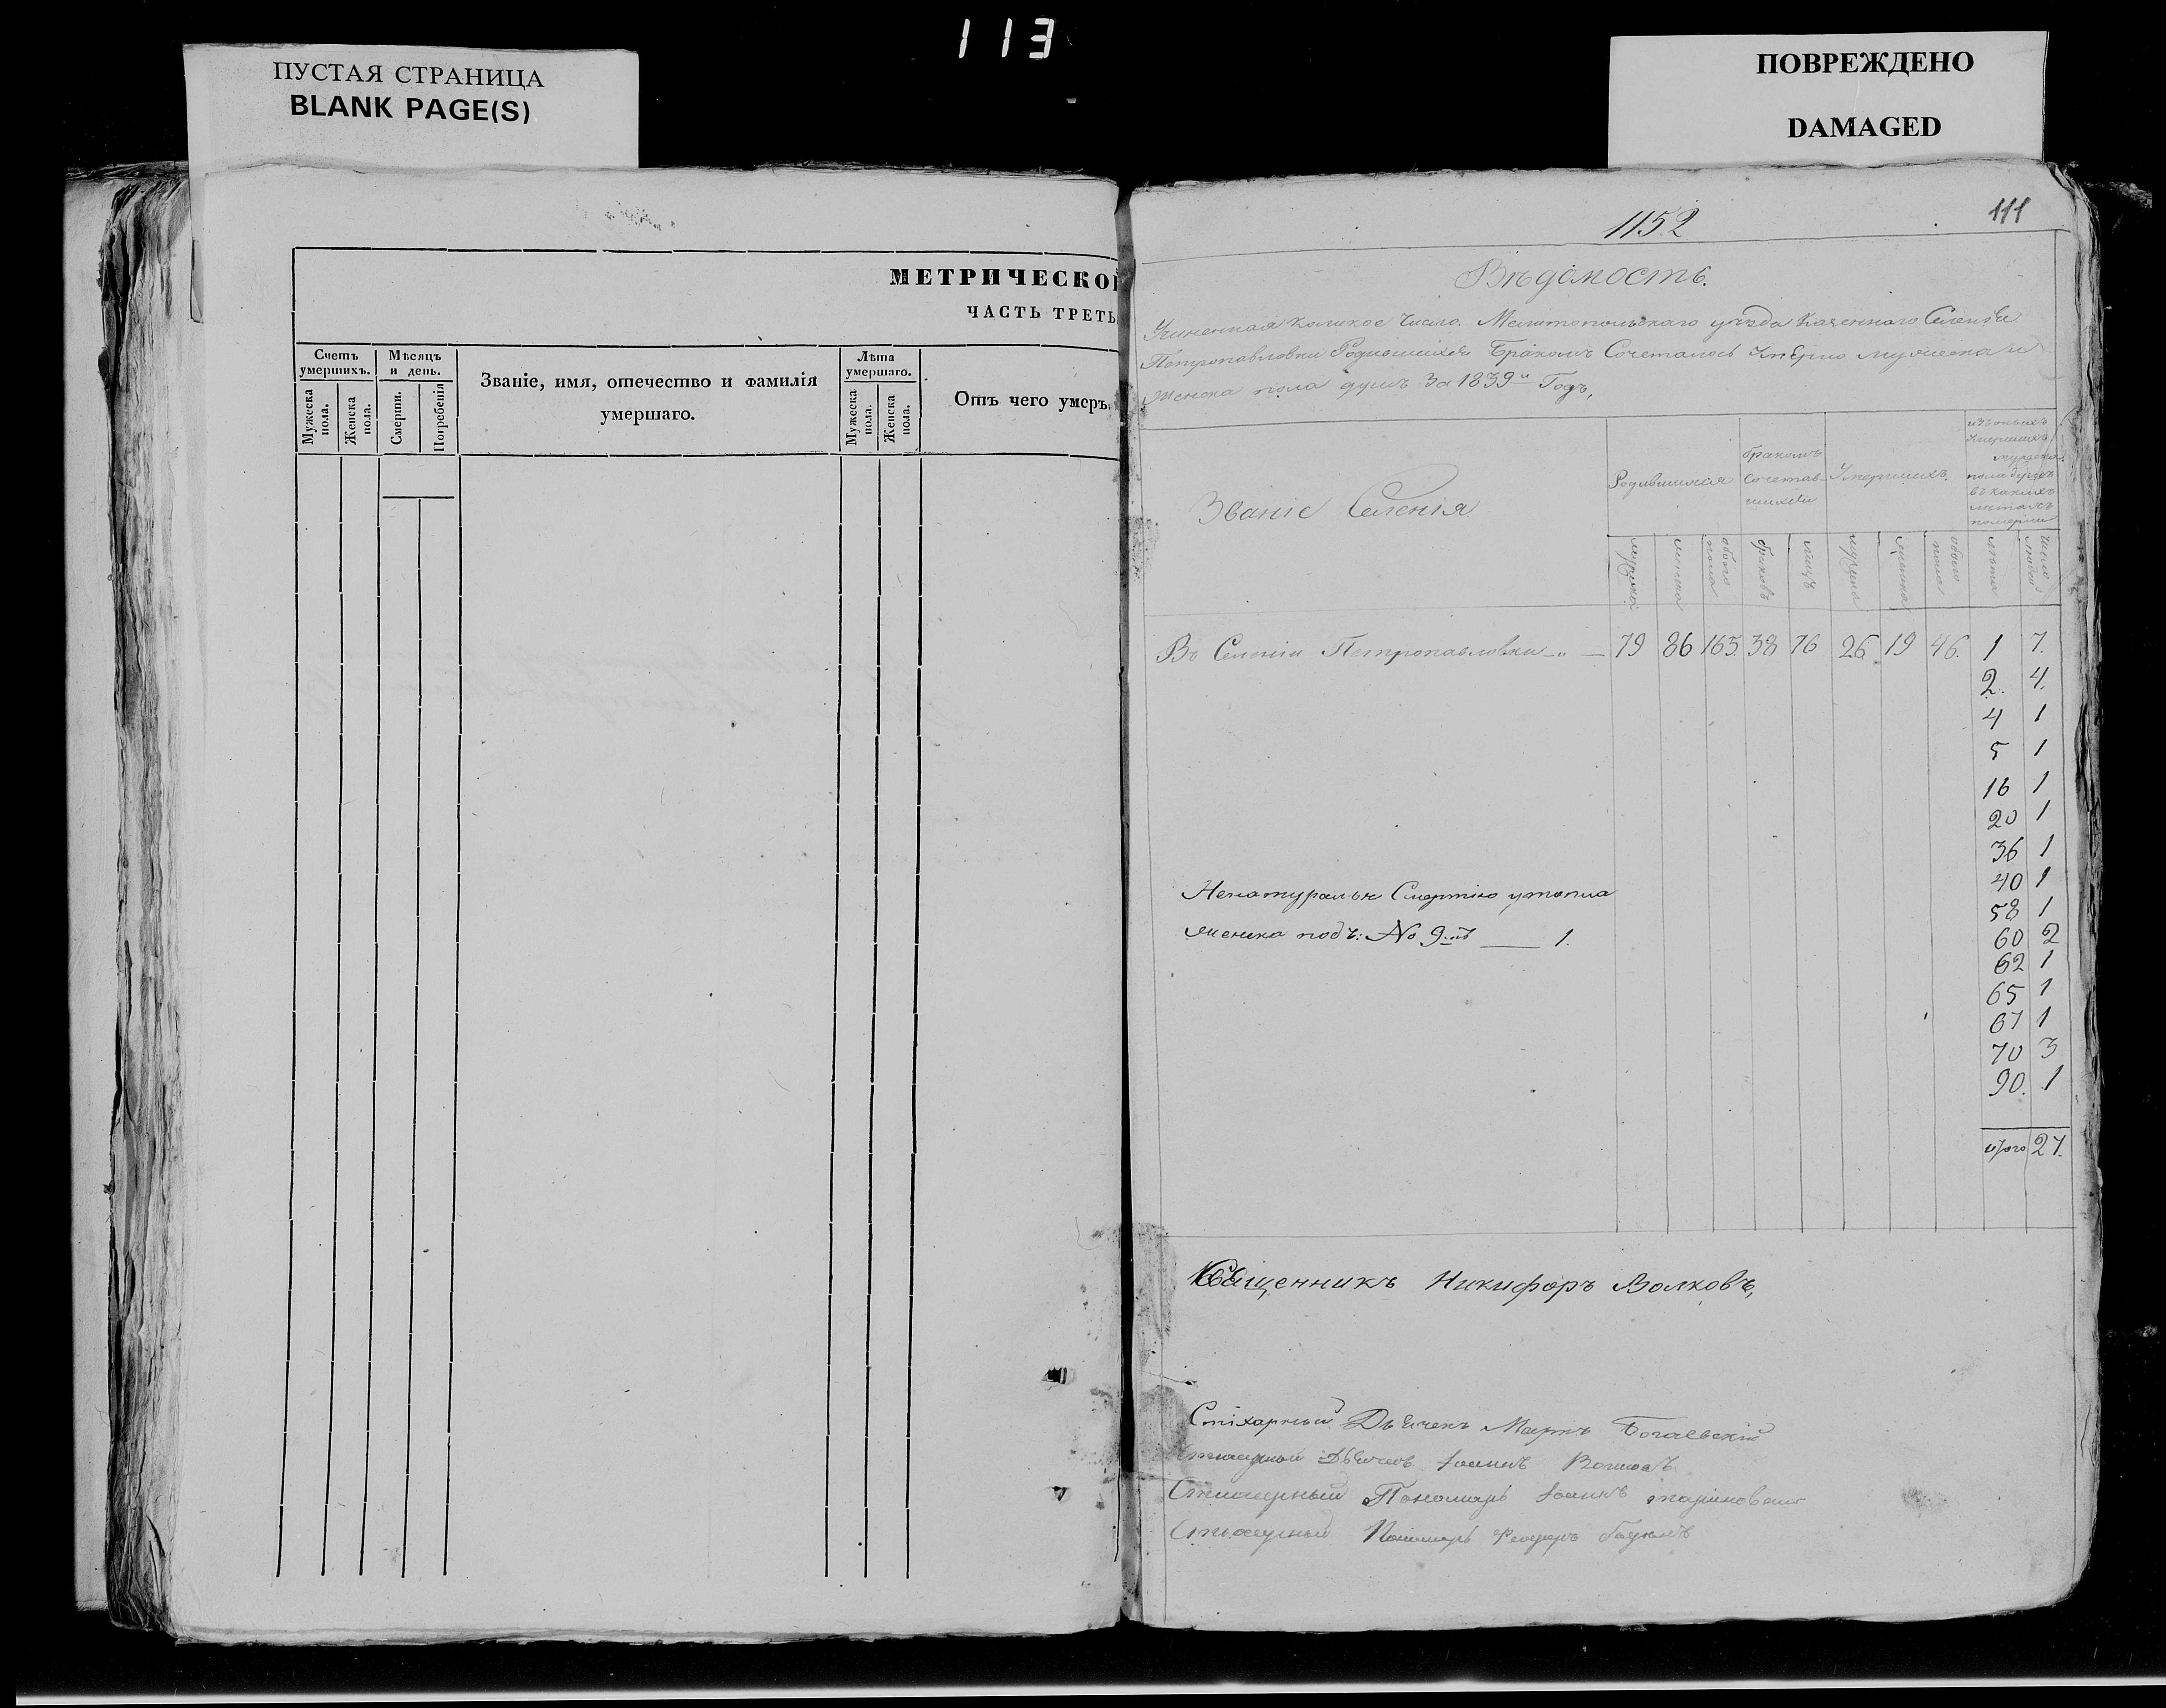 113
ПУСТАЯ СТРАНИЦА
BLANK PAGE(S)
ПОВРЕЖДЕНО
DAMAGED
МЕТРИЧЕСКОЙ
ЧАСТЬ ТРЕТЬ
Счетъ умершихъ.
Мужеска пола.
Женска пола.
Мѣсяцъ и день.
Смерти.
Погребенія
Званіе, имя, отечество и фамилія
умершаго.
Лѣта умершаго.
Мужеска пола.
Женска пола.
Отъ чего умеръ.
1152
111
Вѣдомость.
Учиненная коликое число. Мелитопольскаго уѣзда Казеннаго Селенія
Петропавловки Родившихся Бракомъ Сочеталось Умерло мужеска и
женска пола душъ За 1839й Годъ,
Званіе Селенія
Родившихся
бракомъ
Сочетав-
шихся
Умершихъ.
изъ оныхъ
Умершихъ
мужеска
пола душъ
въ какихъ
лѣтахъ
померли
мужска
женска
обоего пола
браковъ
лицъ
мужска
женска
обоего пола
лѣта
число людей
Въ Селеніи Петропавловки „ 79 86 165 38 76 26 19 46. 1 7.
2. 4.
4 1
5 1
16 1
20 1
36 1
40 1
58 1
60 2
62 1
65 1
67 1
70 3
90. 1
итого 27.
Ненатуральн Смертію утопла
женска подъ: No 9мъ 1.
Священникъ Никифоръ Волковъ,
Стіхарный Дьячекъ Маркъ Богаевскій
Дьячекъ Іоаннъ
Стихарный Пономарь Іоаннъ
Стихарный Пономарь Феодоръ